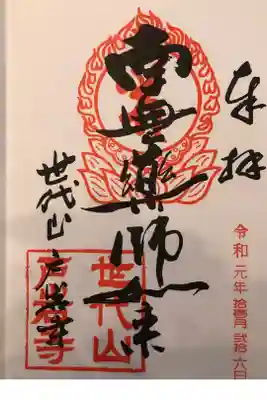 奉拝
令和元年拾壹月貳拾六日
南無藥師如来
世代山戸岩寺
世代山
戸岩寺